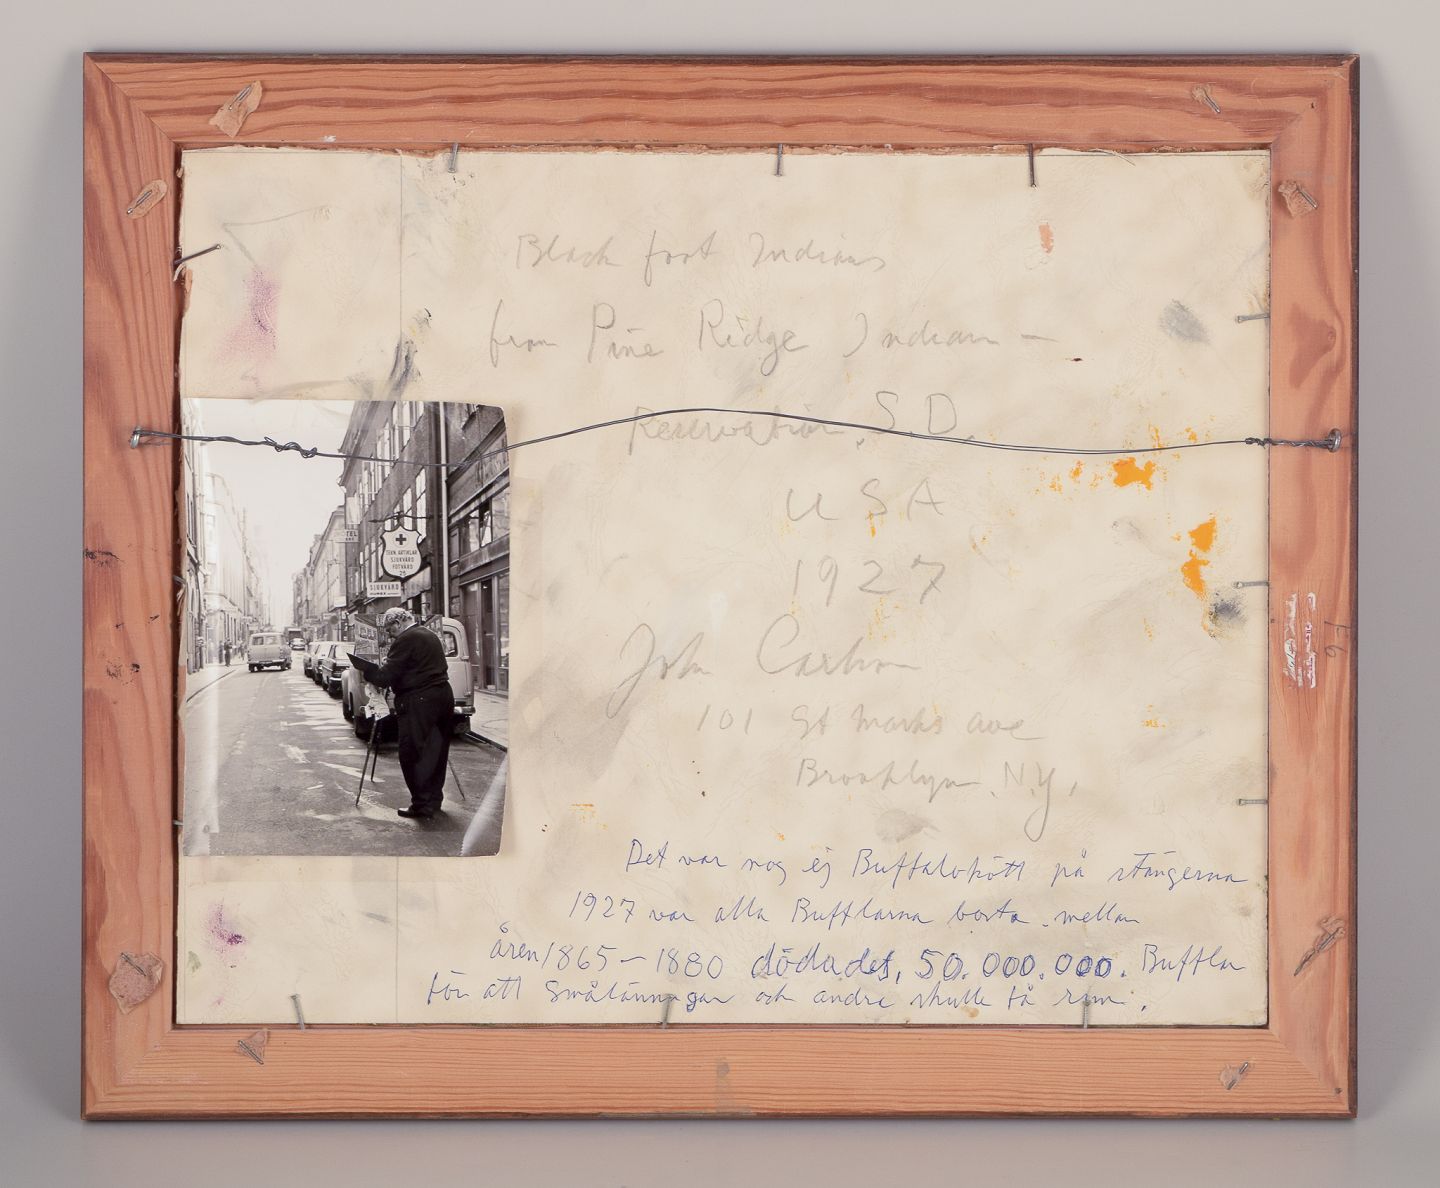 Black foot Indians
from Pine Ridge Indian –
Reservation, S.D.
USA
1927
John Carlson
101 St Marks ave
Brooklyn, N.Y.
TEKN. ARTIKLAR
SJUKVÅRD
FOTVÅRD
25
SJUKVÅRD
Det var nog ej Buffalokött på stängerna
1927 var alla Bufflarna borta. mellan
åren 1865 – 1880 dödades, 50.000.000. Bufflar
för att Smålänningar och andra skulle få rum.